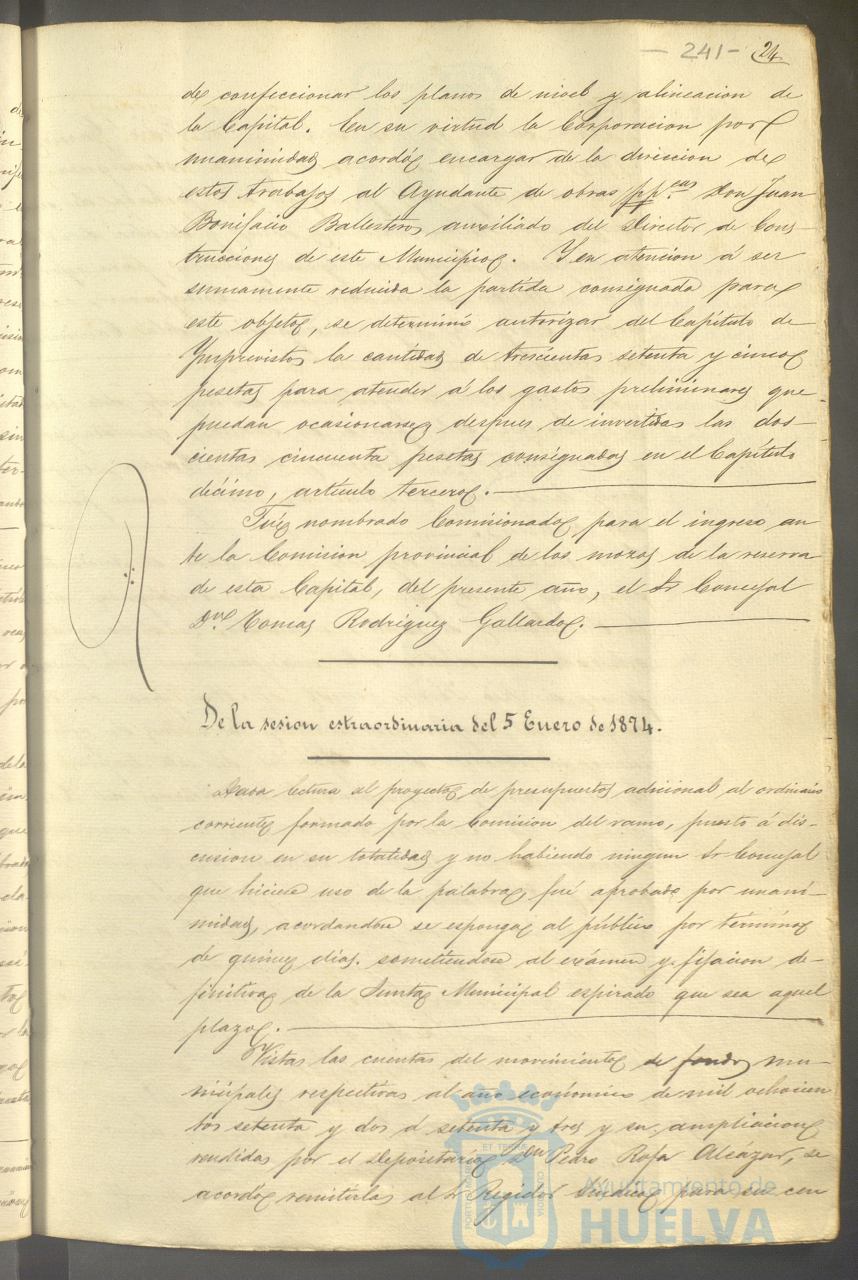 - 241 - 24
de confeccionar los planos de nivel y alineacion de
la Capital. En su virtud la Corporacion por
unanimidad acordó encargar de la direccion de
estos trabajos al Ayudante de obras pp.cas Don Juan
Bonifacio Ballesteros auxiliado del Director de Cons-
trucciones de este Municipio. Y en atencion á ser
sumamente reducida la partida consignada para
este objeto, se determinó autorizar del Capítulo de
Ymprevistos la cantidad de trescientas setenta y cinco
pesetas para atender á los gastos preliminares que
puedan ocasionarse despues de invertidas las dos-
cientas cincuenta pesetas consignadas en el Capítulo
décimo, artículo tercero.
Fué nombrado Comisionado para el ingreso an
te la Comision provincial de los mozos de la reserva
de esta Capital, del presente año, el Sr Concejal
Dn. Tomas Rodriguez Gallardo.
De la sesion estraordinaria del 5 Enero de 1874.
Dada lectura al proyecto de presupuesto adicional al ordinario
corriente formado por la Comision del ramo, puesto á dis-
cusion en su totalidad y no habiendo ningun Sr Concejal
que hiciese uso de la palabra, fué aprobado por unani-
midad, acordandose se esponga al público por término
de quince dias. sometiendose al exámen y fijacion de-
finitiva de la Junta Municipal espirado que sea aquel
plazo.
Vistas las cuentas del movimiento de fondos mu-
nicipales respectivas al año económico de mil ochocien
tos setenta y dos á setenta y tres y su ampliacion
rendidas por el Depositario Don Pedro Rofa Alcázar, se
acordó remitirlas al Sr Regidor Síndico para su cen
Ayuntamiento de
HUELVA